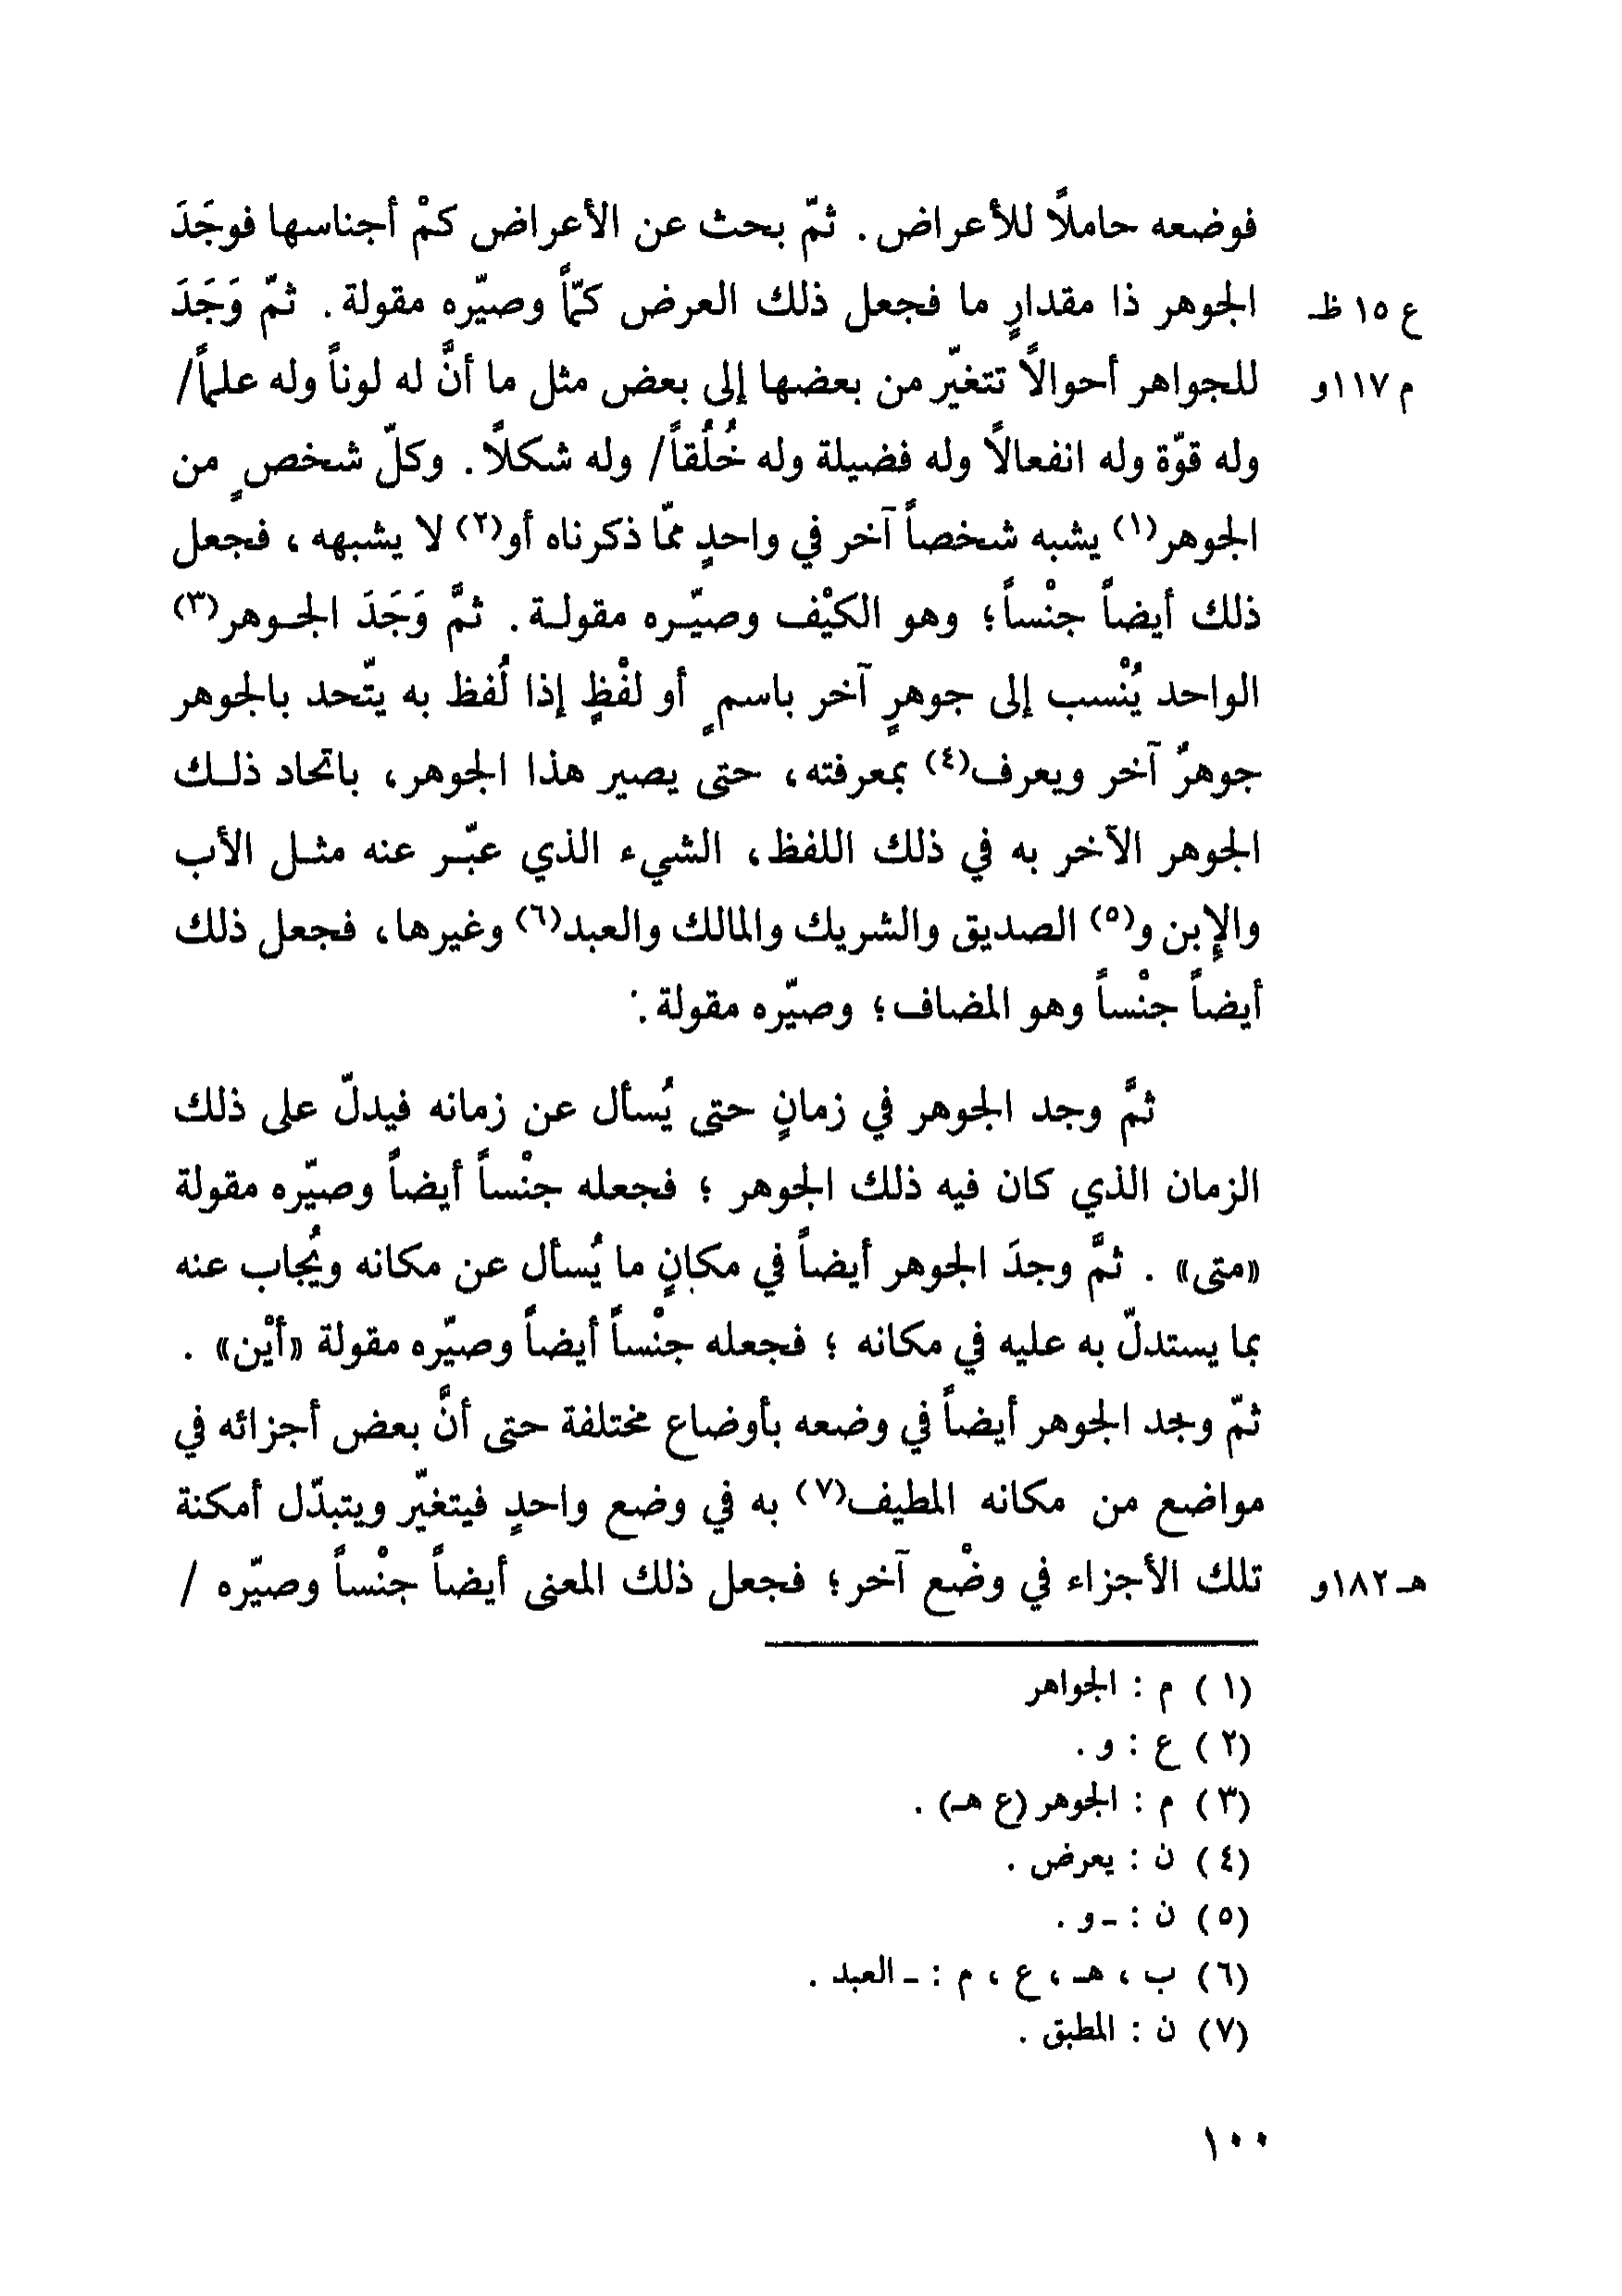 فوضعه حاملاً للأعراض. ثمّ بحث عن الأعراض كمْ أجناسها فوجَدَ
ع ١٥ ظ الجوهر ذا مقدارٍ ما فجعل ذلك العرض كمّاً وصيّره مقولة. ثمّ وَجَدَ
م ١١٧و للجواهر أحوالاً تتغيّر من بعضها إلى بعض مثل ما أنَّ له لوناً وله علماً/
وله قوّة وله انفعالاً وله فضيلة وله خُلُقاً/ وله شكلاً. وكلّ شخصٍ من
الجوهر(١) يشبه شخصاً آخر في واحدٍ ممّا ذكرناه أو(٢) لا يشبهه، فجعل
ذلك أيضاً جنْساً؛ وهو الكيْف وصيّره مقولة. ثمَّ وَجَدَ الجوهر(٣)
الواحد يُنْسب إلى جوهرٍ آخر باسمٍ أو لفْظٍ إذا لُفظ به يتّحد بالجوهر
جوهرٌ آخر ويعرف(٤) بمعرفته، حتى يصير هذا الجوهر، باتحاد ذلك
الجوهر الآخر به في ذلك اللفظ، الشيء الذي عبّر عنه مثل الأب
والإبن و(٥) الصديق والشريك والمالك والعبد(٦) وغيرها، فجعل ذلك
أيضاً جنْساً وهو المضاف؛ وصيّره مقولة.
ثمَّ وجد الجوهر في زمانٍ حتى يُسأل عن زمانه فيدلّ على ذلك
الزمان الذي كان فيه ذلك الجوهر؛ فجعله جنْساً أيضاً وصيّره مقولة
«متى». ثمَّ وجدَ الجوهر أيضاً في مكانٍ ما يُسأل عن مكانه ويُجاب عنه
بما يستدلّ به عليه في مكانه؛ فجعله جنْساً أيضاً وصيّره مقولة «أيْن».
ثمّ وجد الجوهر أيضاً في وضعه بأوضاع مختلفة حتى أنَّ بعض أجزائه في
مواضع من مكانه المطيف(٧) به في وضع واحدٍ فيتغيّر ويتبدّل أمكنة
هـ ١٨٢و تلك الأجزاء في وضْع آخر؛ فجعل ذلك المعنى أيضاً جنْساً وصيّره /
(١) م : الجواهر
(٢) ع : و .
(٣) م : الجوهر (ع هـ) .
(٤) ن : يعرض .
(٥) ن : ـ و .
(٦) ب ، هـ ، ع ، م : ـ العبد .
(٧) ن : المطبق .
١٠٠